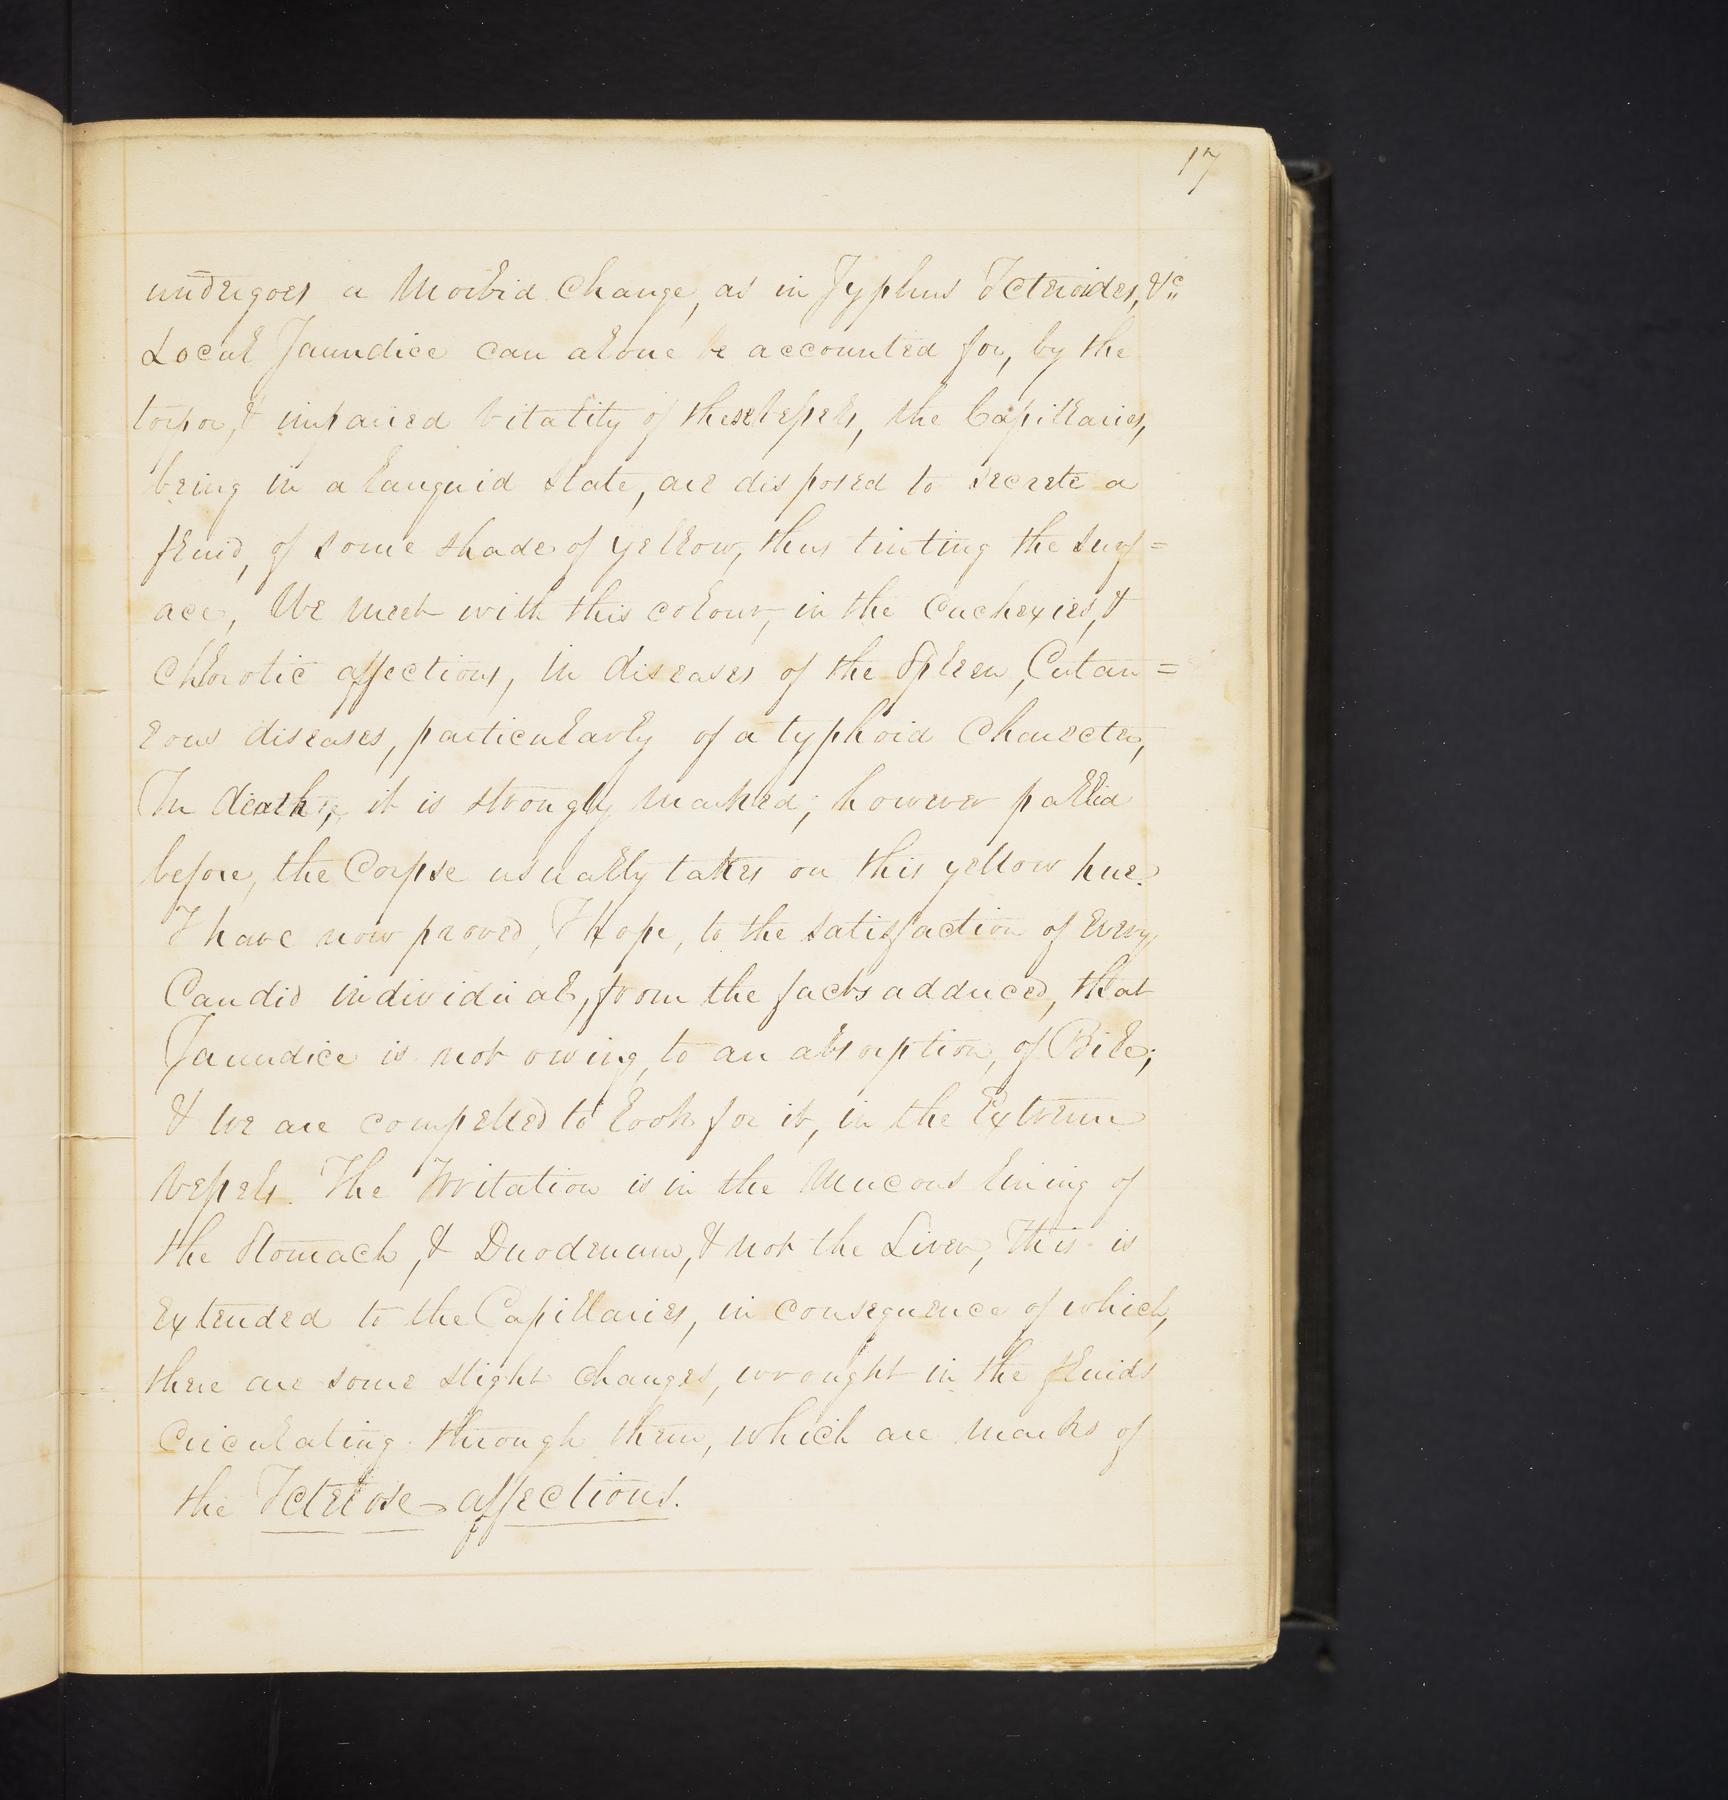 17
undergoes a Morbid Change, as in Typhus Icteroides, &c
Local Jaundice can alone be accounted for, by the
torpor, & impaired Vitality of these Vessels, the Capillaries,
being in a languid State, are disposed to secrete a
fluid, of some shade of yellow, thus tinting the surf=
ace, We meet with this colour, in the Cachexies, &
Chlorotic affections, in diseases of the Spleen, Cutan=
eous diseases, particularly of a typhoid Character,
In death, it is strongly marked; however pallid
before, the Corpse usually takes on this yellow hue.
I have now proved, I hope, to the satisfaction of every
Candid individual, from the facts adduced, that
Jaundice is not owing, to an absorption, of Bile;
& we are compelled to look for it, in the Extreme
Vessels. The Irritation is in the Mucous lining of
the Stomach, & Duodenum, & not the Liver, This is
Extended to the Capillaries, in consequence of which,
there are some slight changes, wrought in the fluids
Circulating through them, which are marks of
the Icterose affections.